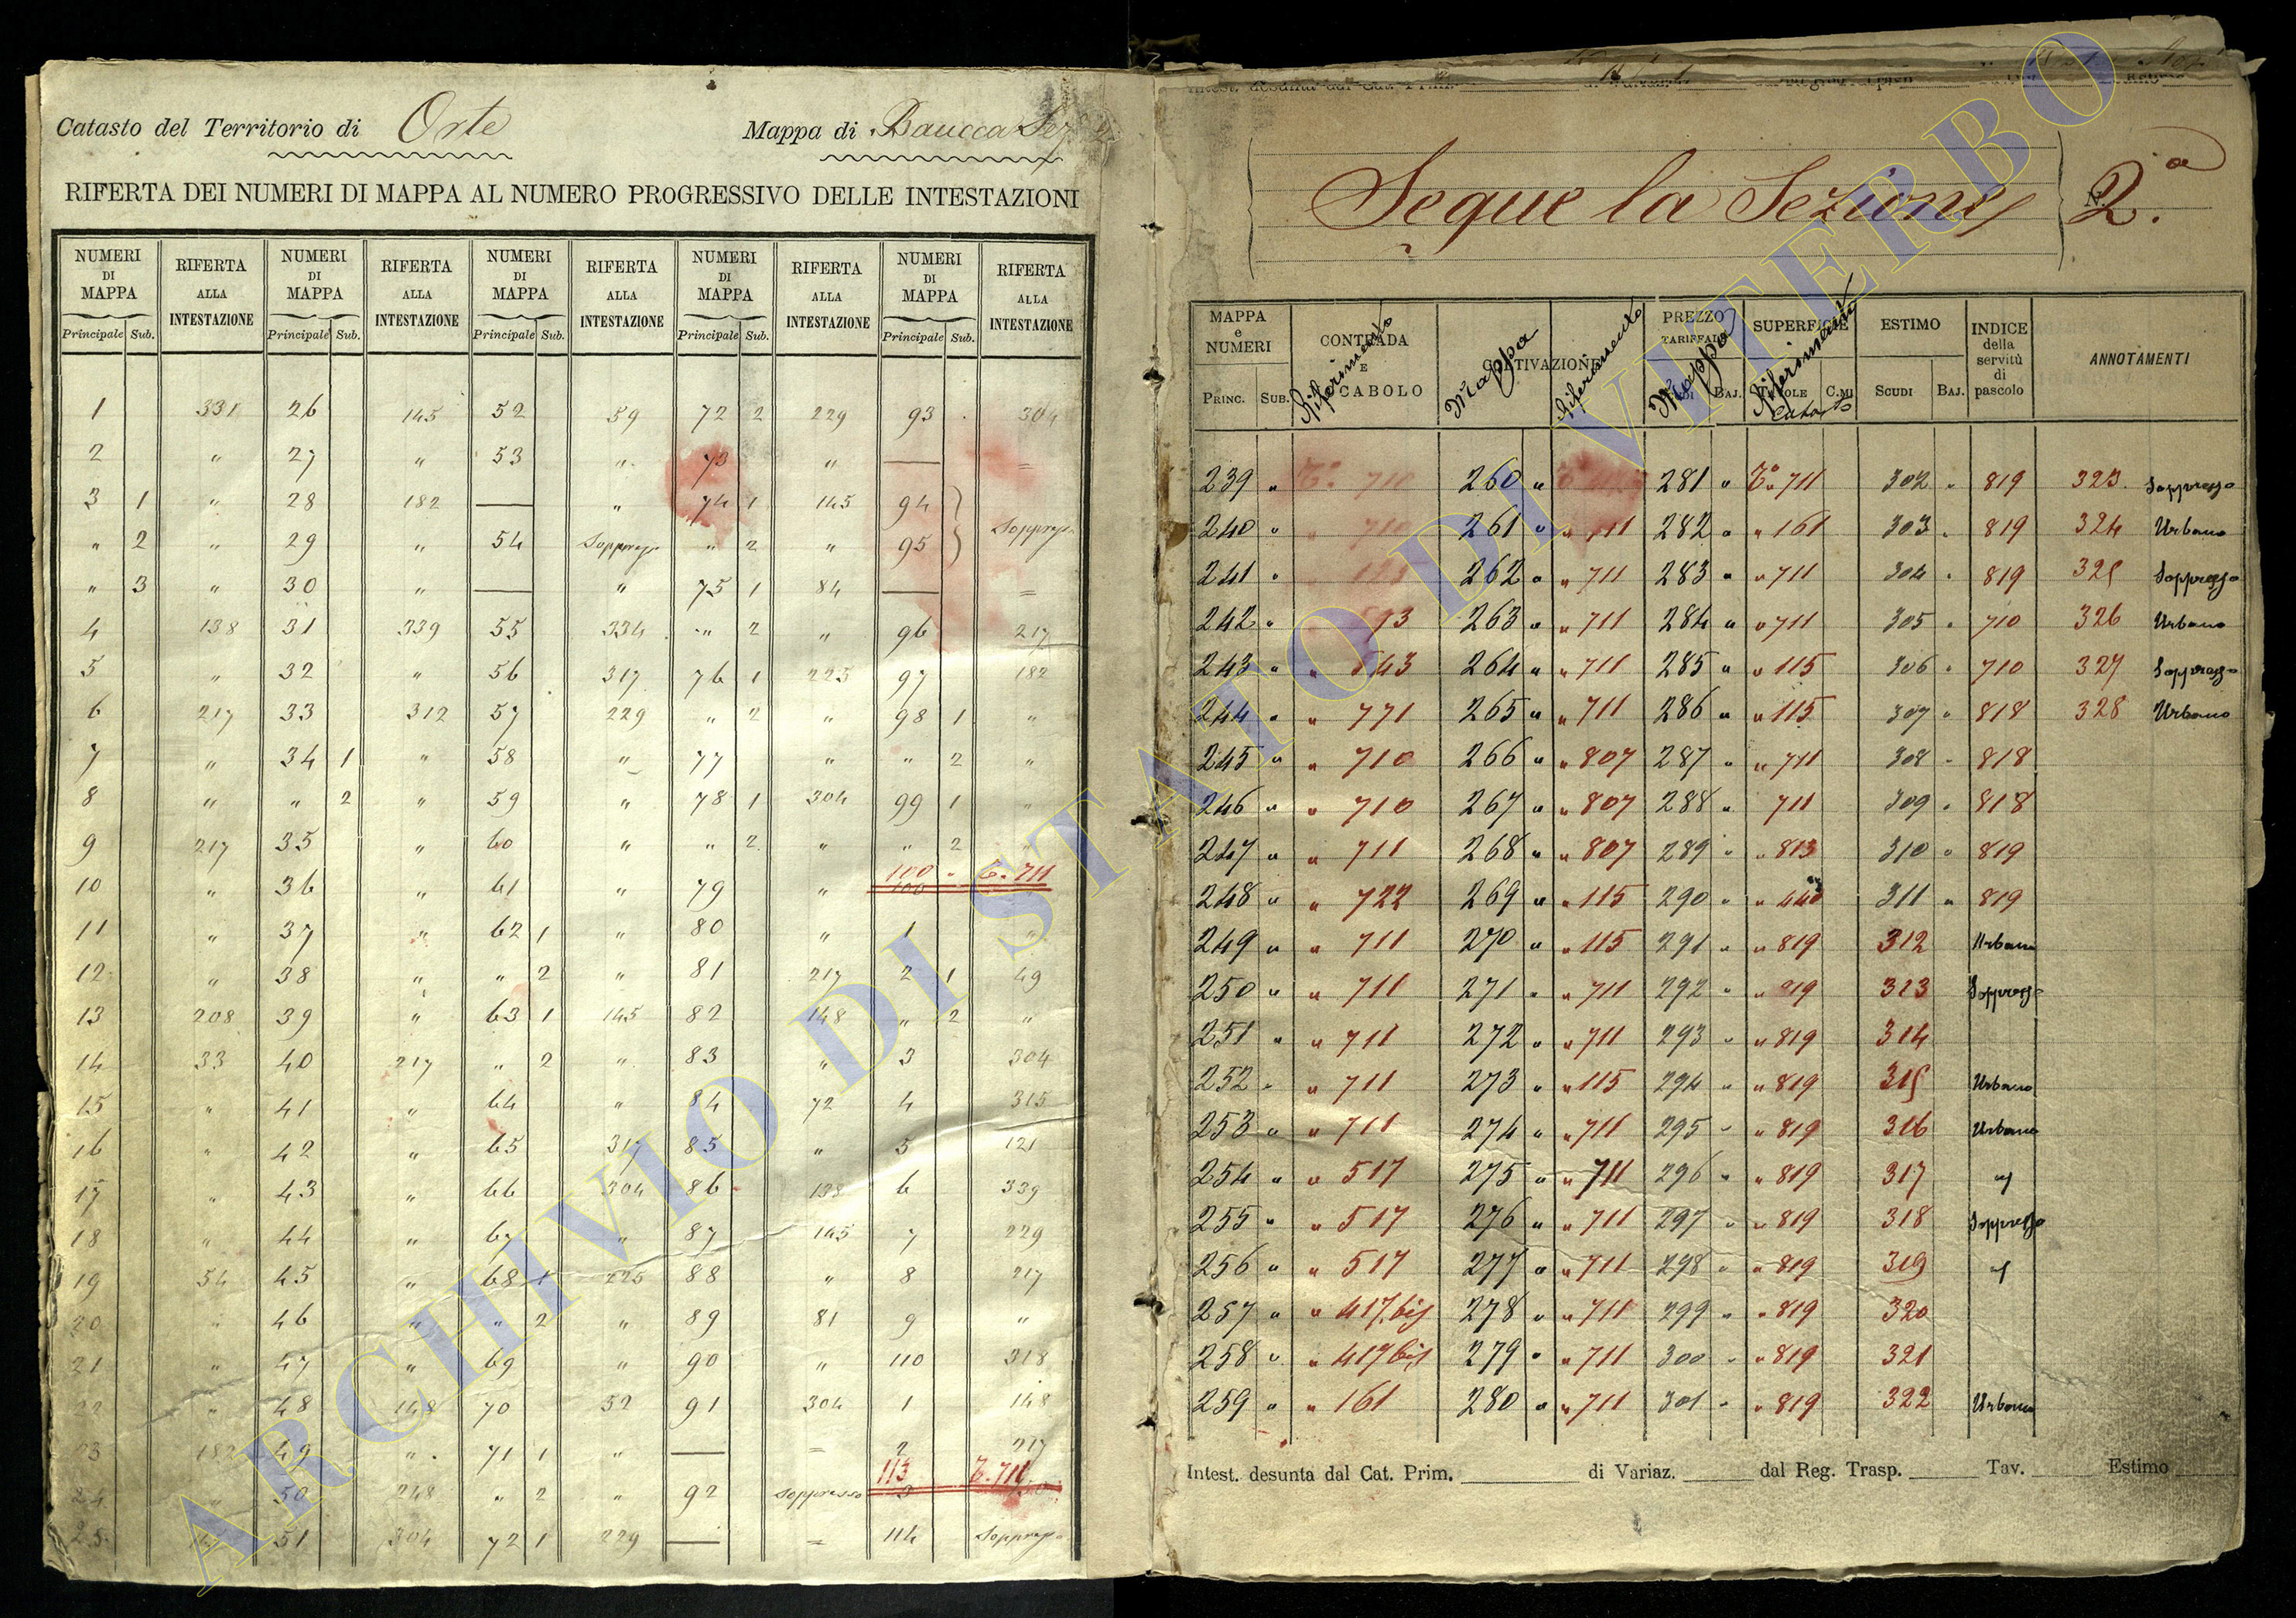 Catasto del Territorio di Orte Mappa di Baucca Sez
RIFERTA DEI NUMERI DI MAPPA AL NUMERO PROGRESSIVO DELLE INTESTAZIONI
NUMERI DI MAPPA RIFERTA ALLA INTESTAZIONE NUMERI DI MAPPA RIFERTA ALLA INTESTAZIONE NUMERI DI MAPPA RIFERTA ALLA INTESTAZIONE NUMERI DI MAPPA RIFERTA ALLA INTESTAZIONE NUMERI DI MAPPA RIFERTA ALLA INTESTAZIONE
Principale Sub. Principale Sub. Principale Sub. Principale Sub. Principale Sub.
1 331 26 145 52 59 72 2 229 93 304
2 " 27 " 53 " 73 " — =
3 1 " 28 182 — " 74 1 145 94
" 2 " 29 " 54 Soppresso " 2 " 95 Soppresso
" 3 " 30 " — " 75 1 84 — =
4 138 31 339 55 334 " 2 " 96 217
5 " 32 " 56 317 76 1 225 97 182
6 217 33 312 57 229 " 2 " 98 1 "
7 " 34 1 " 58 " 77 " " 2 "
8 " " 2 " 59 " 78 1 304 99 1 "
9 217 35 " 60 " " 2 " " 2 "
100 " T. 711
10 " 36 " 61 " 79 " 100
11 " 37 " 62 1 " 80 " 1 "
12 " 38 " " 2 " 81 217 2 1 49
13 208 39 " 63 1 145 82 148 " 2 "
14 33 40 217 " 2 " 83 " 3 304
15 " 41 " 64 " 84 72 4 315
16 " 42 " 65 317 85 " 5 121
17 " 43 " 66 304 86 138 6 339
18 " 44 " 67 " 87 145 7 229
19 54 45 " 68 1 225 88 " 8 217
20 " 46 " " 2 " 89 81 9 "
21 " 47 " 69 " 90 " 110 318
22 " 48 148 70 52 91 304 1 148
23 182 49 " 71 1 " — = 2 217
113 T. 711
24 " 50 248 " 2 " 92 Soppresso 3
25 51 304 72 1 229 — = 114 Soppresso
Segue la Sezione N. 2.a
MAPPA e NUMERI CONTRADA E VOCABOLO COLTIVAZIONE PREZZO TARIFFALE SUPERFICIE ESTIMO INDICE della servitù di pascolo ANNOTAMENTI
PRINC. SUB. SCUDI BAJ. TAVOLE C.MI SCUDI BAJ.
Riferimento Mappa Riferimento Mappa Riferimento Catasto
239 " T.° 710 260 " 281 " T.° 711 302 " 819 323 Soppresso
240 " 710 261 " " 711 282 " " 161 303 " 819 324 Urbano
241 " 262 " " 711 283 " " 711 304 " 819 325 Soppresso
242 " 263 " " 711 284 " " 711 305 " 710 326 Urbano
243 " " 643 264 " " 711 285 " " 115 306 " 710 327 Soppresso
244 " " 771 265 " " 711 286 " " 115 307 " 818 328 Urbano
245 " " 710 266 " " 807 287 " " 711 308 " 818
246 " " 710 267 " " 807 288 " 711 309 " 818
247 " " 711 268 " " 807 289 " " 813 310 " 819
248 " " 722 269 " " 115 290 " " 440 311 " 819
249 " " 711 270 " " 115 291 " " 819 312 Urbano
250 " " 711 271 " " 711 292 " " 819 313 Soppresso
251 " " 711 272 " " 711 293 " " 819 314
252 " " 711 273 " " 115 294 " " 819 315 Urbano
253 " " 711 274 " " 711 295 " " 819 316 Urbano
254 " " 517 275 " " 711 296 " " 819 317 "
255 " " 517 276 " " 711 297 " " 819 318 Soppresso
256 " " 517 277 " " 711 298 " " 819 319 "
257 " " 417 bis 278 " " 711 299 " " 819 320
258 " " 417 bis 279 " " 711 300 " " 819 321
259 " " 161 280 " " 711 301 " " 819 322 Urbano
Intest. desunta dal Cat. Prim. di Variaz. dal Reg. Trasp. Tav. Estimo
ARCHIVIO DI STATO DI VITERBO